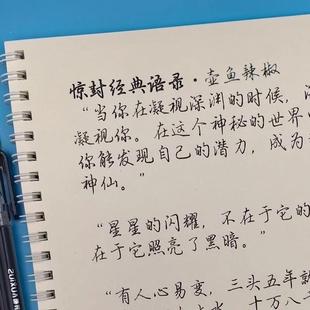 惊封经典语录·壶鱼辣椒
“当你在凝视深渊的时候，
凝视你。在这个神秘的世界
你能发现自己的潜力，成为
神仙。”
“星星的闪耀，不在于它的
在于它照亮了黑暗。”
“有人心易变，三头五年就
十万八千